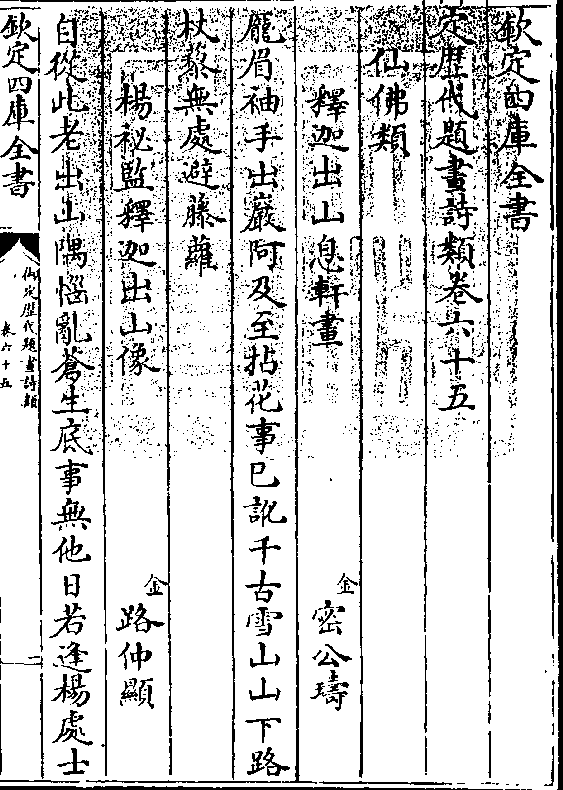 欽定四庫全書
定歴代題畫詩類卷六十五
仙佛類
釋迦出山息軒畫 金 密公璹
龎眉袖手出巖阿及至拈花事已訛千古雪山山下路
杖藜無處避藤蘿
楊祕監釋迦出山像 金 路仲顯
自從此老出山隅惱亂蒼生底事無他日若逢楊處士
欽定四庫全書
御定歴代題畫詩類
卷六十五
一